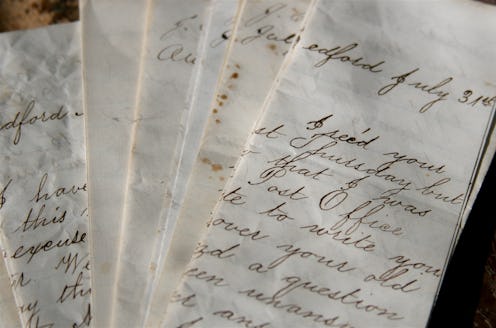 dford
I have
this
excuse
We
y th
Au
G
Guedford July 31st
I rec'd your
st Thursday but
that I was
Post Office
te to write you
over your old
d a question
een unans
er an